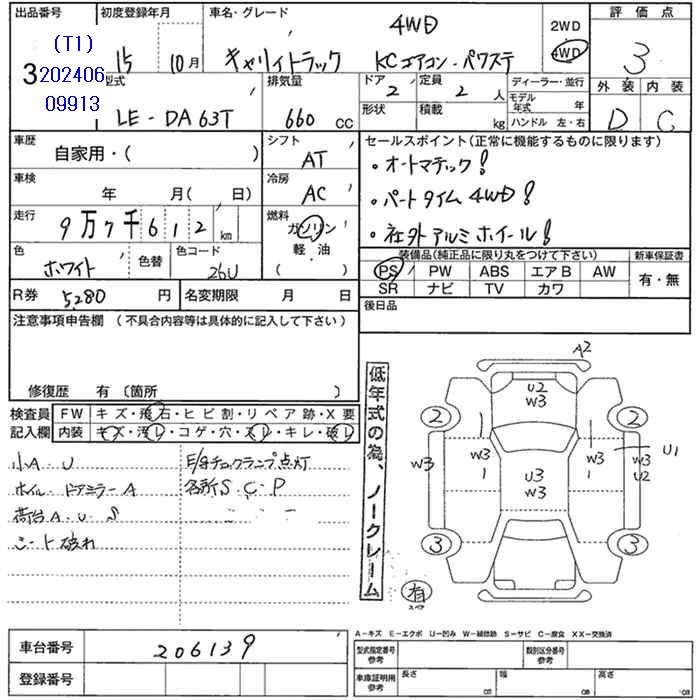 出品番号 初度登録年月 車名・グレード 2WD 評価点
(T1) 4WD
3 202406 15 10月 キャリィトラック KCエアコン・パワステ 4WD 3
09913 型式 排気量 ドア 定員 ディーラー・並行 外装 内装
2 2人 モデル年式 年
LE-DA63T 660 CC 形状 積載 kg ハンドル 左・右 D C
車歴 シフト セールスポイント(正常に機能するものに限ります)
自家用・( ) AT ・オートマチック!
車検 冷房
年 月( 日) AC ・パートタイム4WD!
走行 燃料
9万7千612km ガソリン ・社外アルミホイール!
色 色替 色コード 軽油 装備品(純正品に限り丸をつけて下さい) 新車保証書
ホワイト 26U ( ) PS PW ABS エアB AW 有・無
SR ナビ TV カワ
R券 5280円 名変期限 月 日 後日品
注意事項申告欄 (不具合内容等は具体的に記入して下さい)
修復歴 有 〔箇所 〕
検査員 FW キズ・飛石・ヒビ割・リペア跡・X要
記入欄 内装 キズ・汚レ・コゲ・穴・スレ・キレ・破レ
小A・U E/gチェックランプ点灯
ホイル・ドアミラーA 各所S・C・P
荷台A・U・S
シート破れ
低年式の為、ノークレーム
A2
U2
W3
2 2
W3 W3 1 U3 W3 W3 1 W3 U2 U1
3 3
有
スペア
車台番号 206139
登録番号
A−キズ E−エクボ U−凹み W−補修跡 S−サビ C−腐食 XX−交換済
型式指定番号 参考 類別区分番号 参考
車庫証明用 参考 長さ cm 幅 cm 高さ cm